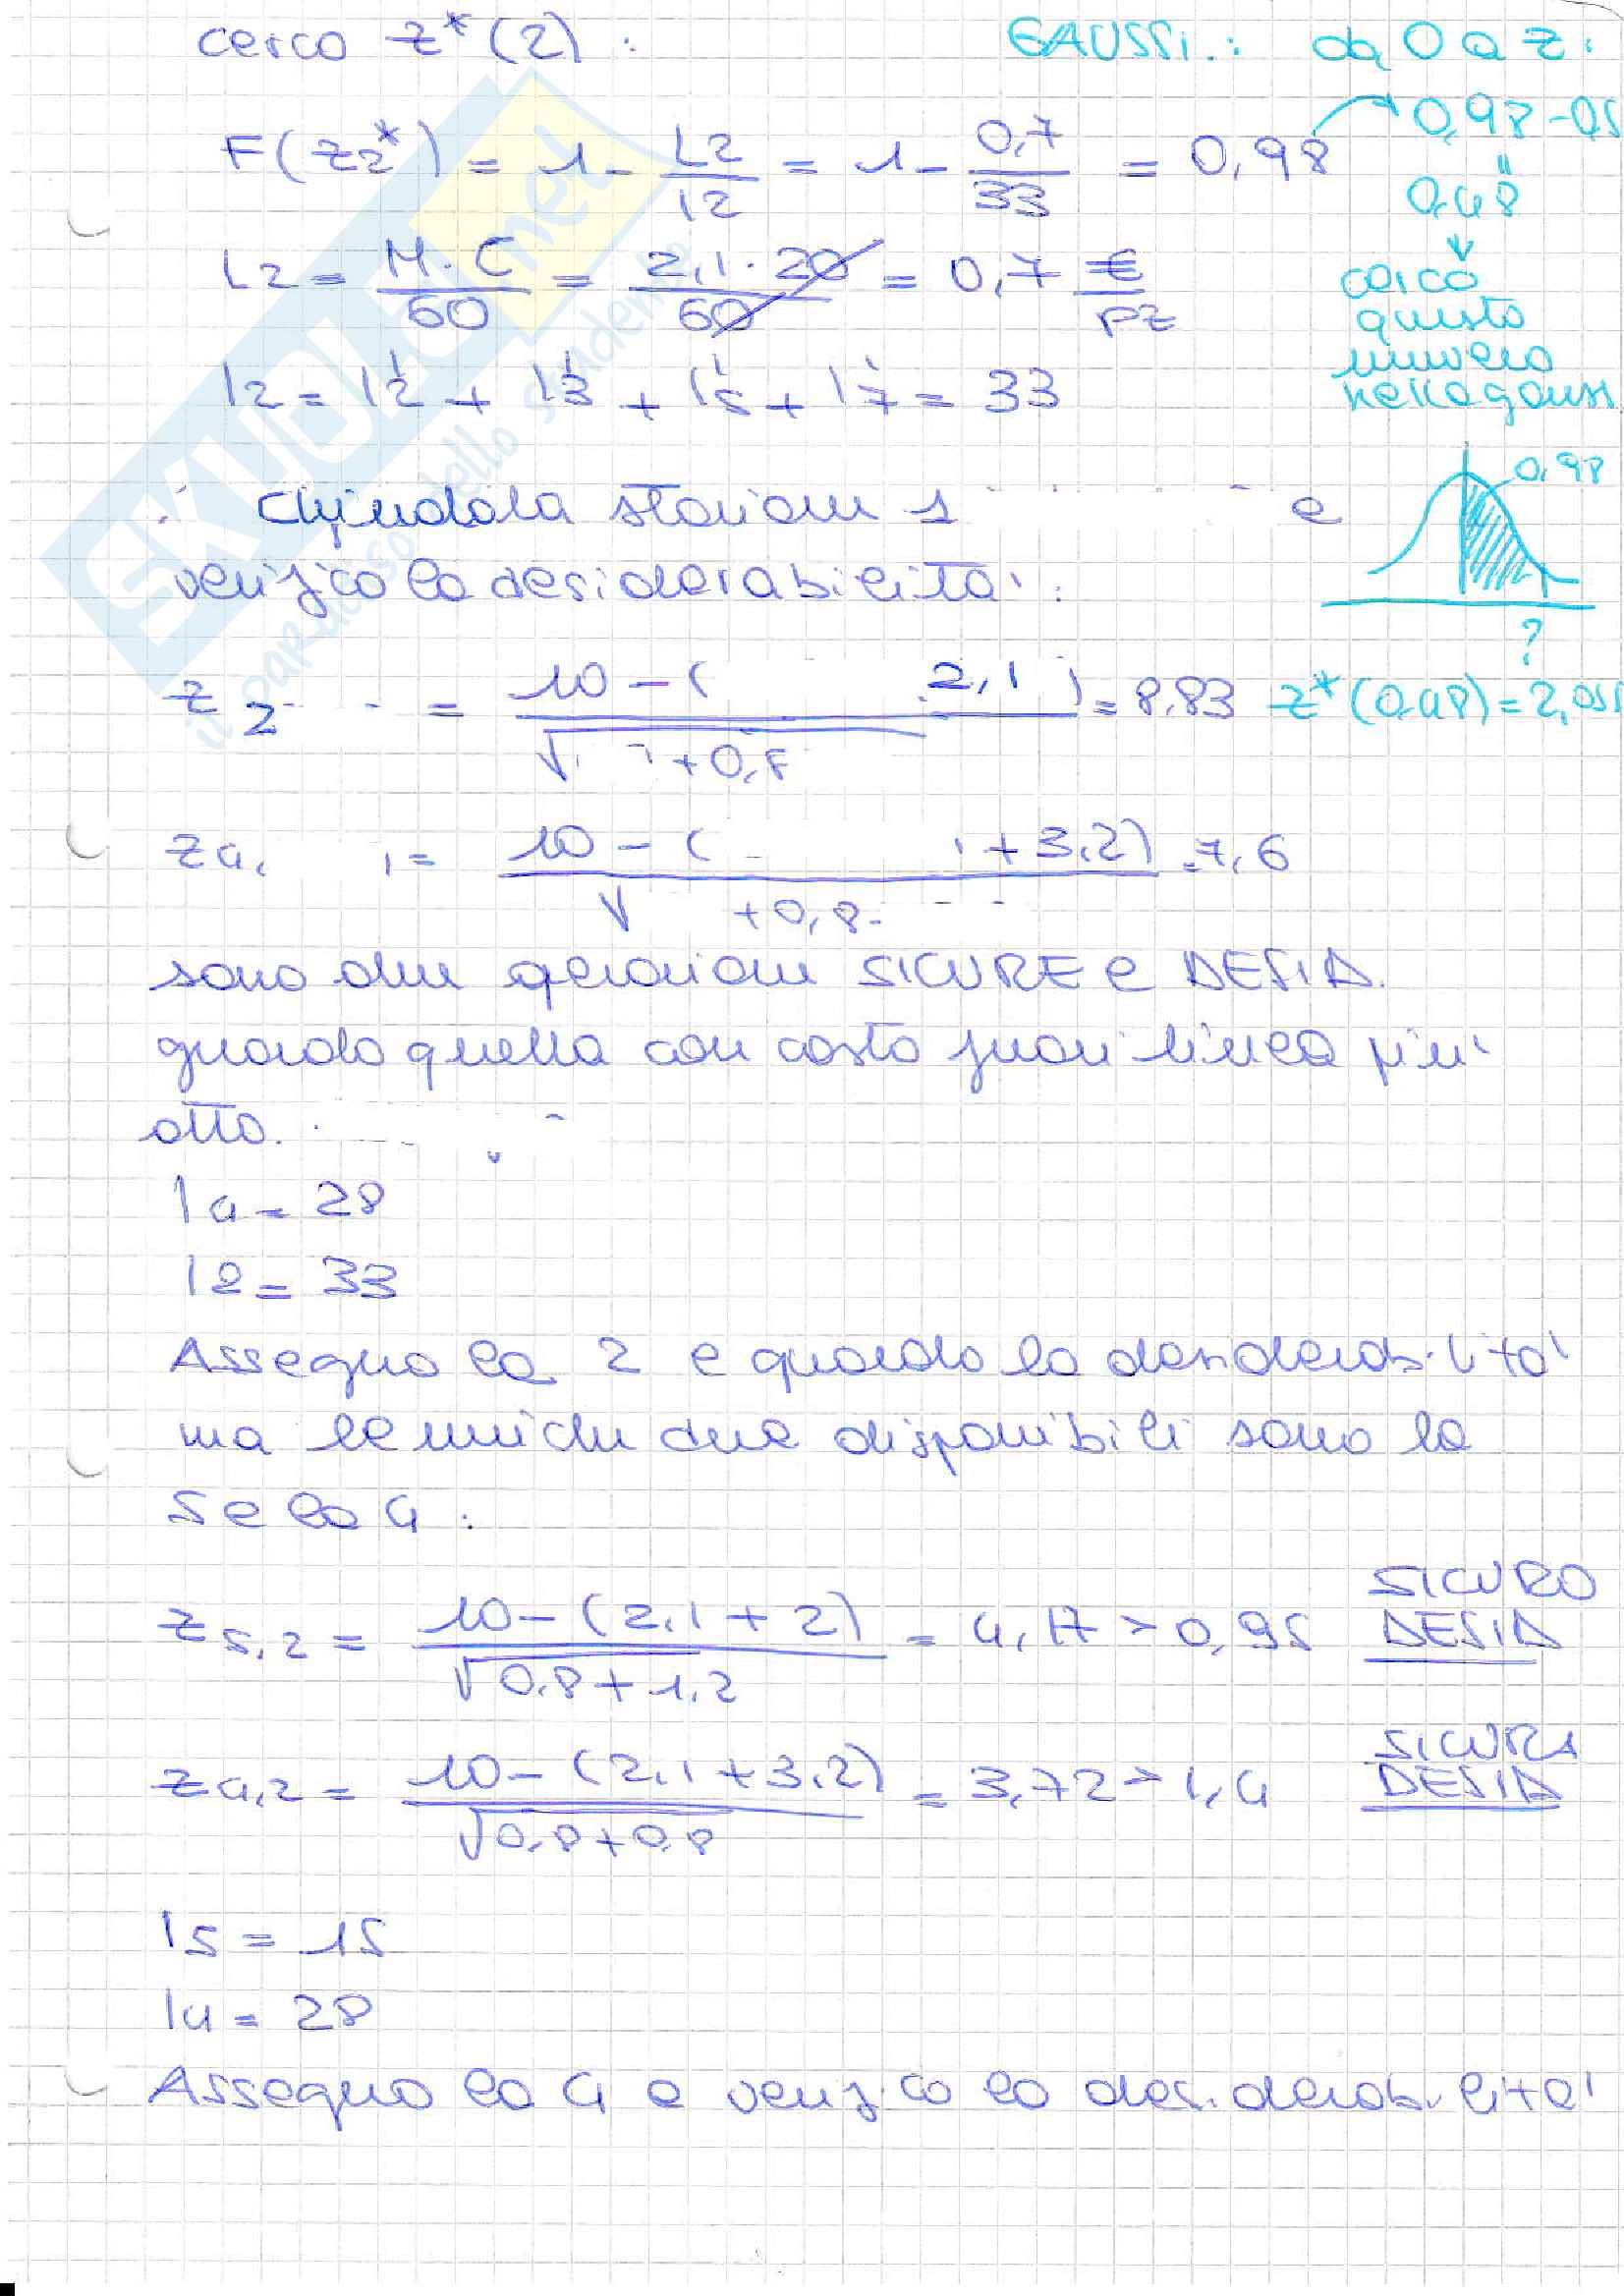 cerco z*(2) :
GAUSS.: da 0 a z.
F(z2*) = 1 - L2/I2 = 1 - 0,7/33 = 0,98
0,98 - 0,5
"
0,48
↓
cerco
questo
numero
nella gauss
L2 = M·C/60 = 2,1·20/60 = 0,7 €/pz
I2 = I'2 + I'3 + I'5 + I'7 = 33
0,98
?
Chiudo la stazione 1 e
verifico la desiderabilità:
z2 = 10-( 2,1 )/√ +0,8 = 8,83
z*(0,48) = 2,055
z4, = 10-( +3,2)/√ +0,8 = 7,6
sono due operazioni SICURE e DESID.
guardo quella con costo fuori linea più
alto.
I4 = 28
I2 = 33
Assegno la 2 e guardo la desiderabilità
ma le uniche due disponibili sono la
5 e la 4 :
z5,2 = 10-(2,1+2)/√0,8+1,2 = 4,17 > 0,95 SICURO DESID
z4,2 = 10-(2,1+3,2)/√0,8+0,8 = 3,72 > 1,4 SICURA DESID
I5 = 15
I4 = 28
Assegno la 4 e verifico la desiderabilità
SKUOLA.net
il paradiso dello studente